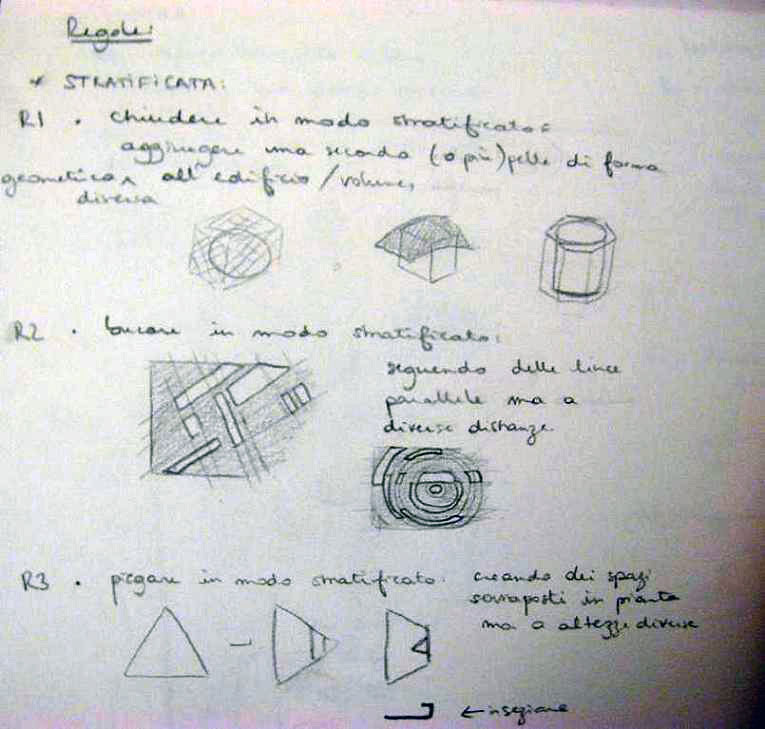 Regole:
* STRATIFICATA:
R1 . chiudere in modo stratificato:
aggiungere una seconda (o più) pelle di forma
geometrica all'edificio/volume,
diversa
R2 . bucare in modo stratificato:
seguendo delle linee
parallele ma a
diverse distanze.
R3 . piegare in modo stratificato: creando dei spazi
sovraposti in pianta
ma a altezze diverse
← in sezione